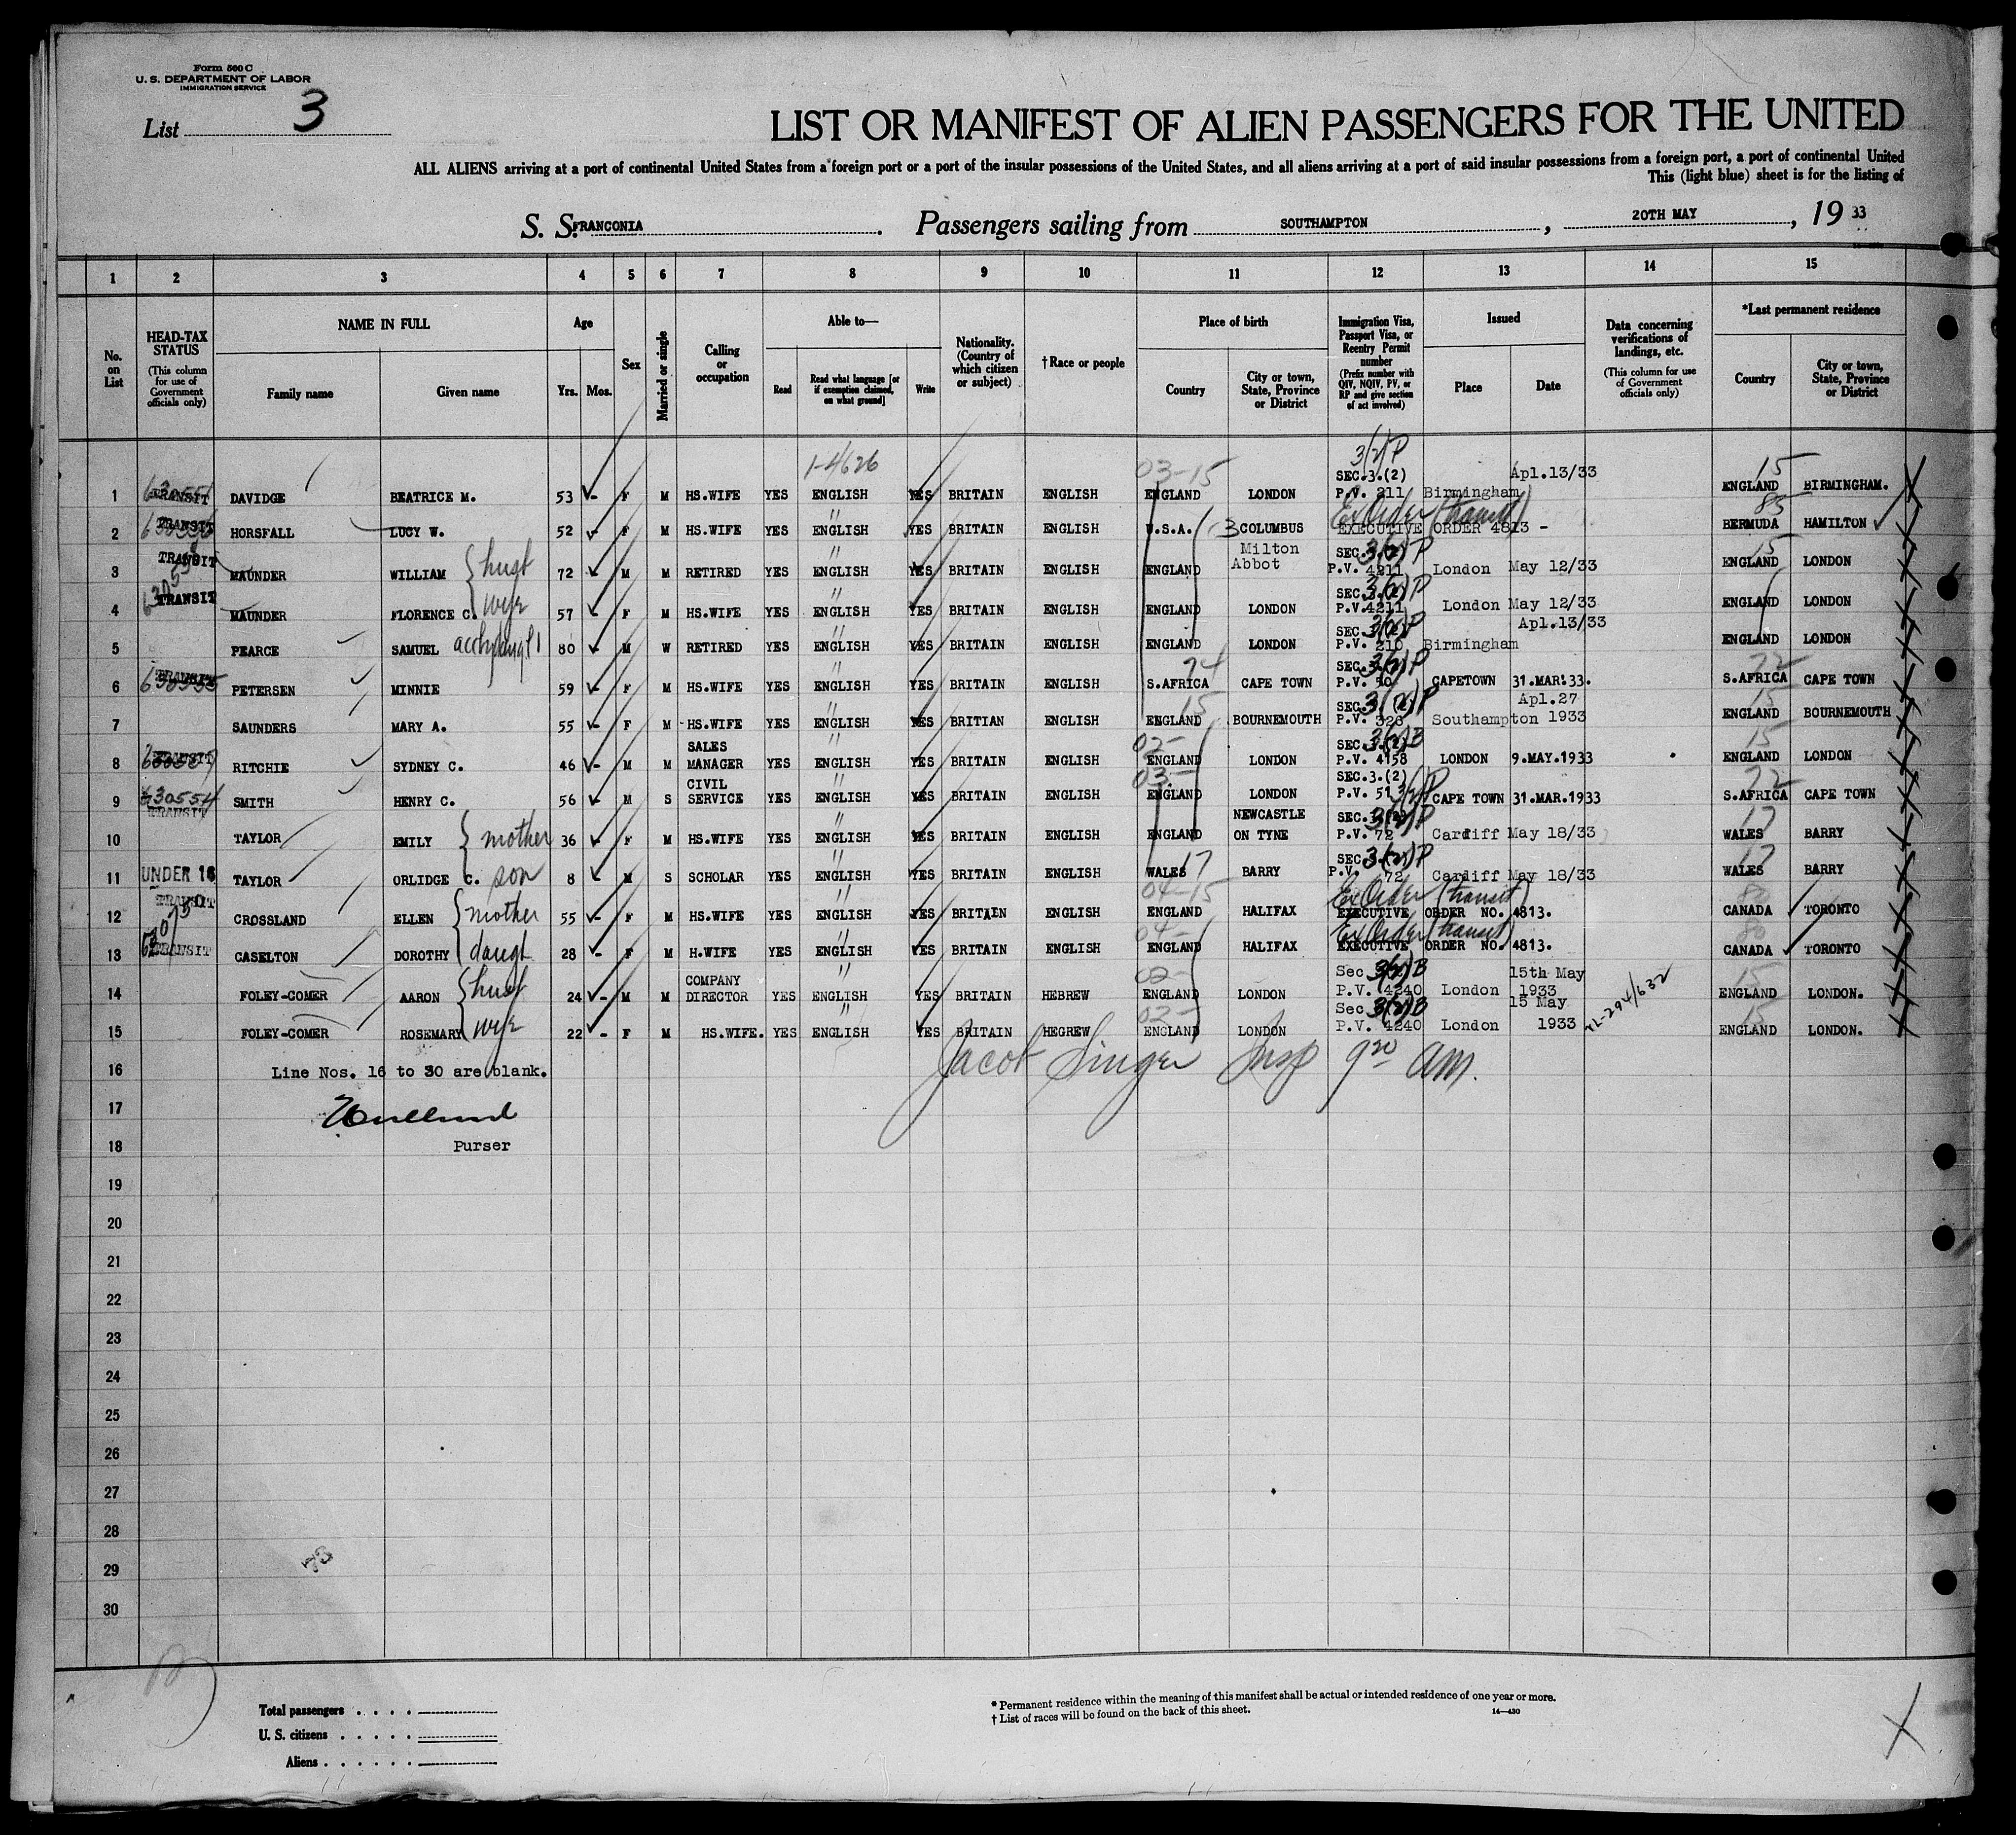 Form 500 C
U. S. DEPARTMENT OF LABOR
IMMIGRATION SERVICE
List 3
LIST OR MANIFEST OF ALIEN PASSENGERS FOR THE UNITED
ALL ALIENS arriving at a port of continental United States from a foreign port or a port of the insular possessions of the United States, and all aliens arriving at a port of said insular possessions from a foreign port, a port of continental United
This (light blue) sheet is for the listing of
S. S. FRANCONIA . Passengers sailing from SOUTHAMPTON , 20TH MAY , 19 33
1 2 3 4 5 6 7 8 9 10 11 12 13 14 15
No. on List
HEAD-TAX STATUS (This column for use of Government officials only)
NAME IN FULL Family name Given name
Age Yrs. Mos.
Sex
Married or single
Calling or occupation
Able to— Read Read what language [or if exemption claimed, on what ground] Write
Nationality. (Country of which citizen or subject)
† Race or people
Place of birth Country City or town, State, Province or District
Immigration Visa, Passport Visa, or Reentry Permit number (Prefix number with QIV, NQIV, PV, or RP and give section of act involved)
Issued Place Date
Data concerning verifications of landings, etc. (This column for use of Government officials only)
*Last permanent residence Country City or town, State, Province or District
1-4626 03-15 3(2)P 15
1 TRANSIT DAVIDGE BEATRICE M. 53 - F M HS.WIFE YES ENGLISH YES BRITAIN ENGLISH ENGLAND LONDON SEC.3.(2) P.V. 211 Birmingham Apl.13/33 ENGLAND BIRMINGHAM.
Ex Order (transit) 85
2 TRANSIT HORSFALL LUCY W. 52 - F M HS.WIFE YES ENGLISH YES BRITAIN ENGLISH U.S.A. 3 COLUMBUS EXECUTIVE ORDER 4813 - BERMUDA HAMILTON
3 TRANSIT MAUNDER WILLIAM husb 72 - M M RETIRED YES ENGLISH YES BRITAIN ENGLISH ENGLAND Milton Abbot SEC.3.(2) 3(2)P P.V. 4211 London May 12/33 15 ENGLAND LONDON
4 TRANSIT MAUNDER FLORENCE C. wife 57 - F M HS.WIFE YES ENGLISH YES BRITAIN ENGLISH ENGLAND LONDON SEC.3.(2) 3(2)P P.V.4211 London May 12/33 ENGLAND LONDON
5 PEARCE SAMUEL 80 M W RETIRED YES ENGLISH YES BRITAIN ENGLISH ENGLAND LONDON SEC.3.(2) P.V. 210 Birmingham Apl.13/33 ENGLAND LONDON
6 TRANSIT PETERSEN MINNIE 59 - F M HS.WIFE YES ENGLISH YES BRITAIN ENGLISH 74 S.AFRICA CAPE TOWN SEC.3.(2) 3(2)P P.V. 50 CAPETOWN 31.MAR.33. 72 S.AFRICA CAPE TOWN
7 SAUNDERS MARY A. 55 - F M HS.WIFE YES ENGLISH YES BRITIAN ENGLISH 15 ENGLAND BOURNEMOUTH SEC.3.(2) 3(2)P P.V. 326 Southampton Apl.27 1933 15 ENGLAND BOURNEMOUTH
8 TRANSIT RITCHIE SYDNEY C. 46 - M M SALES MANAGER YES ENGLISH YES BRITAIN ENGLISH 02- ENGLAND LONDON SEC.3.(2) 3(2)B P.V. 4158 LONDON 9.MAY.1933 15 ENGLAND LONDON
9 630554 TRANSIT SMITH HENRY C. 56 - M S CIVIL SERVICE YES ENGLISH YES BRITAIN ENGLISH 03- ENGLAND LONDON SEC.3.(2) P.V. 51 3(2)P CAPE TOWN 31.MAR.1933 72 S.AFRICA CAPE TOWN
10 TAYLOR EMILY mother 36 - F M HS.WIFE YES ENGLISH YES BRITAIN ENGLISH ENGLAND NEWCASTLE ON TYNE SEC.3.(2) 3(2)P P.V. 72 Cardiff May 18/33 17 WALES BARRY
11 UNDER 16 TAYLOR ORLIDGE C. son 8 M S SCHOLAR YES ENGLISH YES BRITAIN ENGLISH WALES 17 BARRY SEC 3(2)P P.V. 72 Cardiff May 18/33 17 WALES BARRY
12 TRANSIT CROSSLAND ELLEN mother 55 - F M HS.WIFE YES ENGLISH YES BRITAIN ENGLISH 04-15 ENGLAND HALIFAX Ex Order (transit) EXECUTIVE ORDER NO. 4813. CANADA TORONTO
13 TRANSIT CASELTON DOROTHY daught 28 - F M H.WIFE YES ENGLISH YES BRITAIN ENGLISH 04- ENGLAND HALIFAX Ex Order (transit) EXECUTIVE ORDER NO. 4813. CANADA TORONTO
14 FOLEY-COMER AARON husb 24 - M M COMPANY DIRECTOR YES ENGLISH YES BRITAIN HEBREW 02- ENGLAND LONDON Sec 3(2)B P.V. 4240 London 15th May 1933 15 ENGLAND LONDON.
15 FOLEY-COMER ROSEMARY wife 22 - F M HS.WIFE. YES ENGLISH YES BRITAIN HEGREW 02- ENGLAND LONDON Sec 3(2)B P.V. 4240 London 15 May 1933 15 ENGLAND LONDON.
16 Line Nos. 16 to 30 are blank. Jacob Singer Insp 9 20 am.
17
18 Purser
19
20
21
22
23
24
25
26
27
28
29
30
Total passengers . . . .
U. S. citizens . . . . .
Aliens . . . . . .
* Permanent residence within the meaning of this manifest shall be actual or intended residence of one year or more.
† List of races will be found on the back of this sheet.
14—430